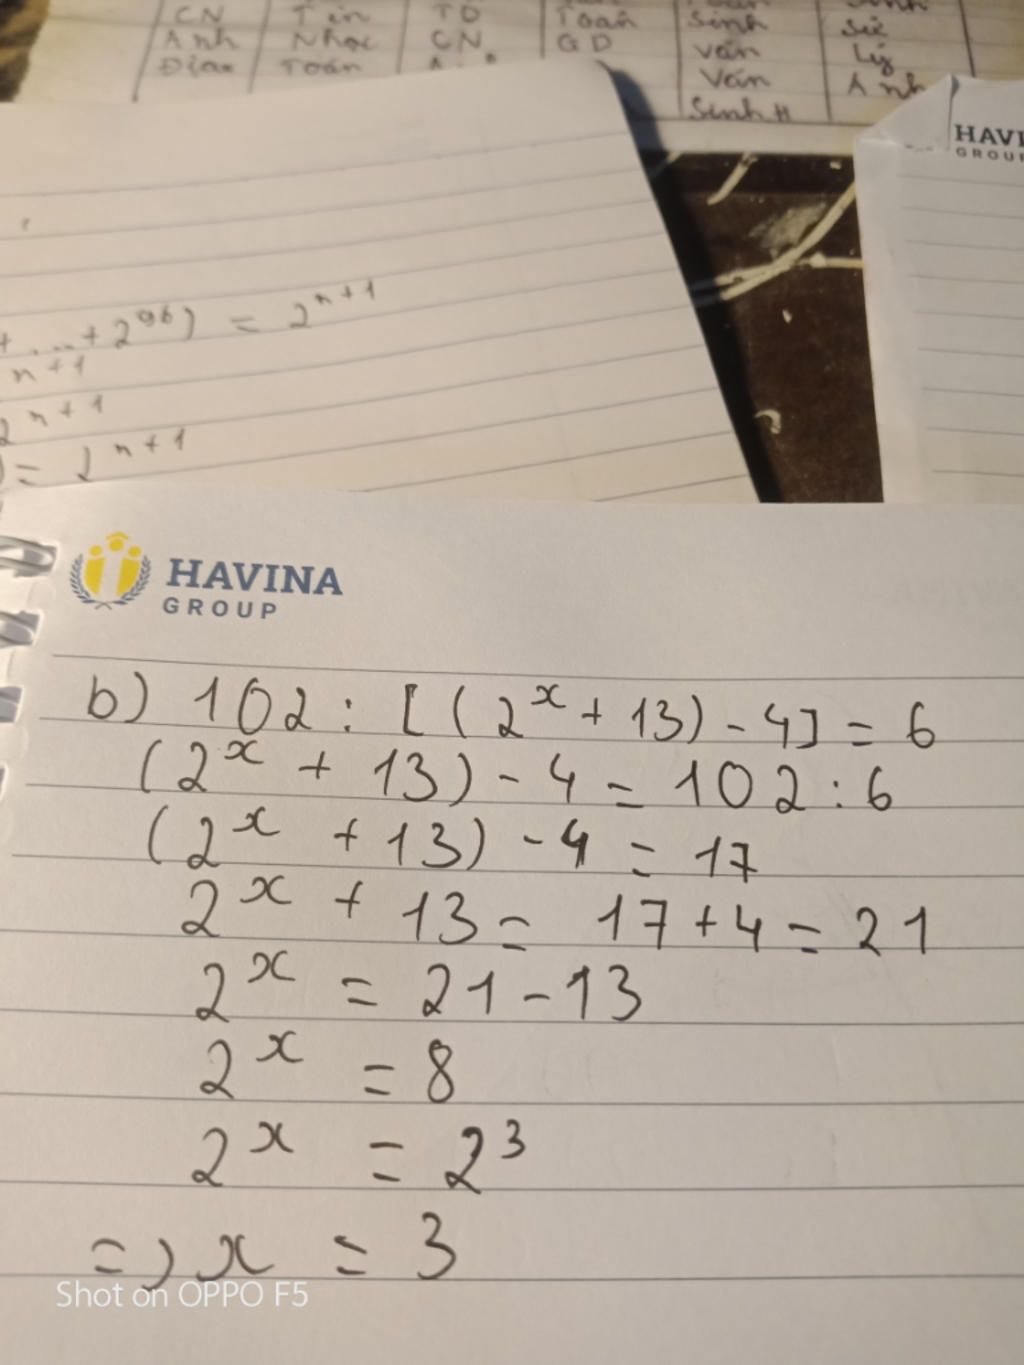 CN Tin TD Toán Sinh
Anh Nhạc CN GD Văn Sử
Địa Toán Văn Lý
Sinh H Anh
HAVI
GROUP
+ ... + 2⁹⁶) = 2ⁿ⁺¹
n+1
2ⁿ⁺¹
) = 2ⁿ⁺¹
HAVINA
GROUP
b) 102 : [(2ˣ + 13) - 4] = 6
(2ˣ + 13) - 4 = 102 : 6
(2ˣ + 13) - 4 = 17
2ˣ + 13 = 17 + 4 = 21
2ˣ = 21 - 13
2ˣ = 8
2ˣ = 2³
=> x = 3
Shot on OPPO F5